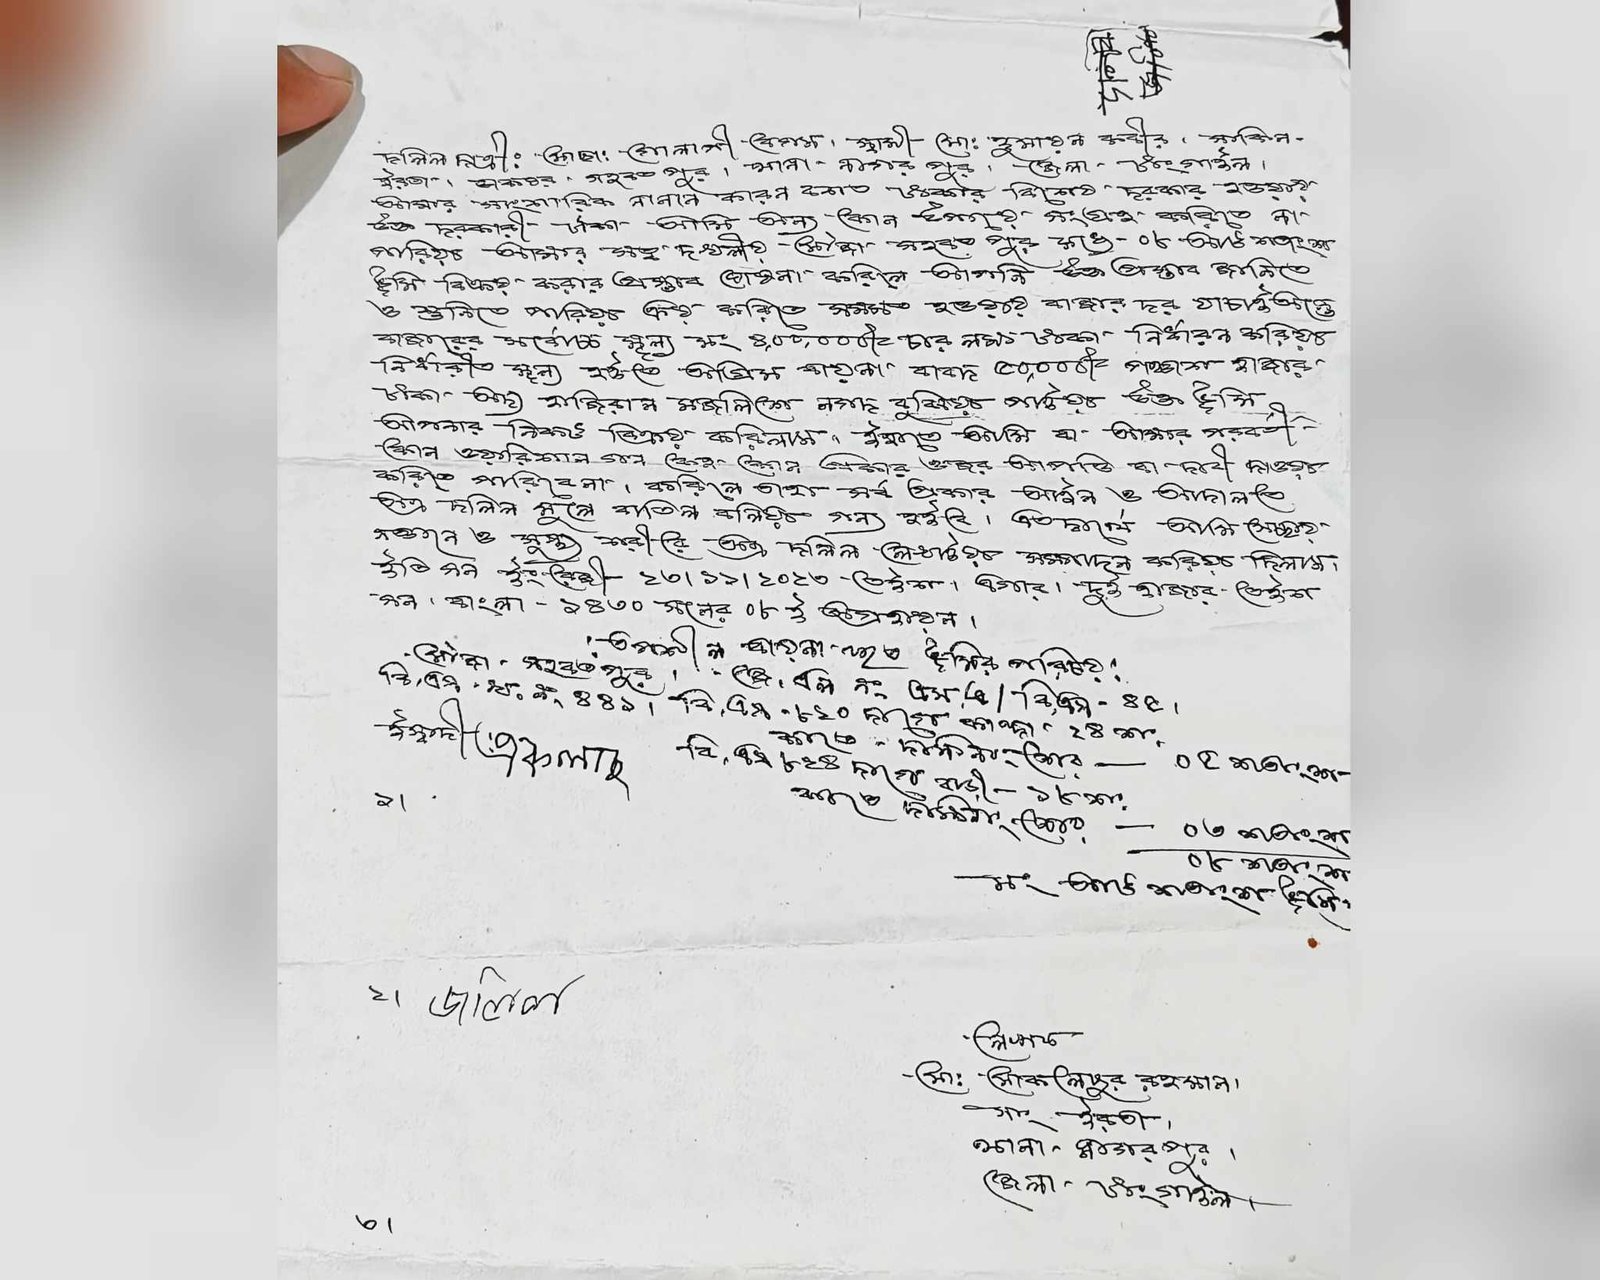 দলিল দাত্রী: মোছা: গোলাপী বেগম, স্বামী- মো: হুমায়ুন কবীর, সাকিন-
ইরতা, ডাকঘর- সহবতপুর, থানা- নাগরপুর, জেলা- টাংগাইল।
আমার সাংসারিক নানান কারন বসত টাকার বিশেষ দরকার হওয়ায়
উক্ত দরকারী টাকা আমি অন্য কোন উপায়ে সংগ্রহ করিতে না
পারিয়া আমার স্বত্ব দখলীয় মৌজা সহবতপুর মধ্যে- ০৮ আট শতাংশ
ভূমি বিক্রয় করার প্রস্তাব ঘোষনা করিলে আপনি উক্ত প্রস্তাব জানিতে
ও শুনিতে পারিয়া ক্রয় করিতে সম্মত হওয়ায় বাজার দর যাচাই অন্তে
বাজারের সর্বোচ্চ মূল্য মং ৪,০০,০০০/= চার লক্ষ টাকা নির্ধারন করিয়া
নির্ধারীত মূল্য হইতে অগ্রিম বায়না বাবদ ৫০,০০০/= পঞ্চাশ হাজার
টাকা অদ্য হাজিরান মজলিশে নগদ বুঝিয়া পাইয়া উক্ত ভূমি
আপনার নিকট বিক্রয় করিলাম। ইহাতে আমি বা আমার পরবর্তী
কোন ওয়ারিশান গন কেহ কোন প্রকার ওজর আপত্তি বা দাবী দাওয়া
করিতে পারিবেনা। করিলে তাহা সর্ব প্রকার আইন ও আদালতে
অত্র দলিল মূলে বাতিল বলিয়া গন্য হইবে। এতদার্থে আমি স্বেচ্ছায়
সজ্ঞানে ও সুস্থ্য শরীরে অত্র দলিল লেখাইয়া সম্পাদন করিয়া দিলাম।
ইতি সন ইংরেজী- ২৩/১১/২০২৩ তেইশ। এগার। দুই হাজার তেইশ
সন। বাংলা- ১৪৩০ সনের ০৮ ই অগ্রহায়ন।
: তপশীল বায়না কৃত ভূমির পরিচয় :
মৌজা- সহবতপুর। জে, এল নং এস,এ/ বি,এস- ৪৫।
বি,এস- খং নং ৪৪১। বি,এস- ৮২০ দাগে কান্দা- ২৪ শাং
কাতে দক্ষিনাং শের — ০৫ শতাংশ
ইশাদী: একলাছ
বি,এস ৮২৪ দাগে বাড়ী- ১৮ শাং
১।
কাতে দক্ষিনাং শের — ০৩ শতাংশ
০৮ শতাংশ
মং আট শতাংশ ভূমি।
২। জলিল
লেখক
মো: মোকলেছুর রহমান।
সাং- ইরতা।
থানা- নাগরপুর।
জেলা- টাংগাইল।
৩।